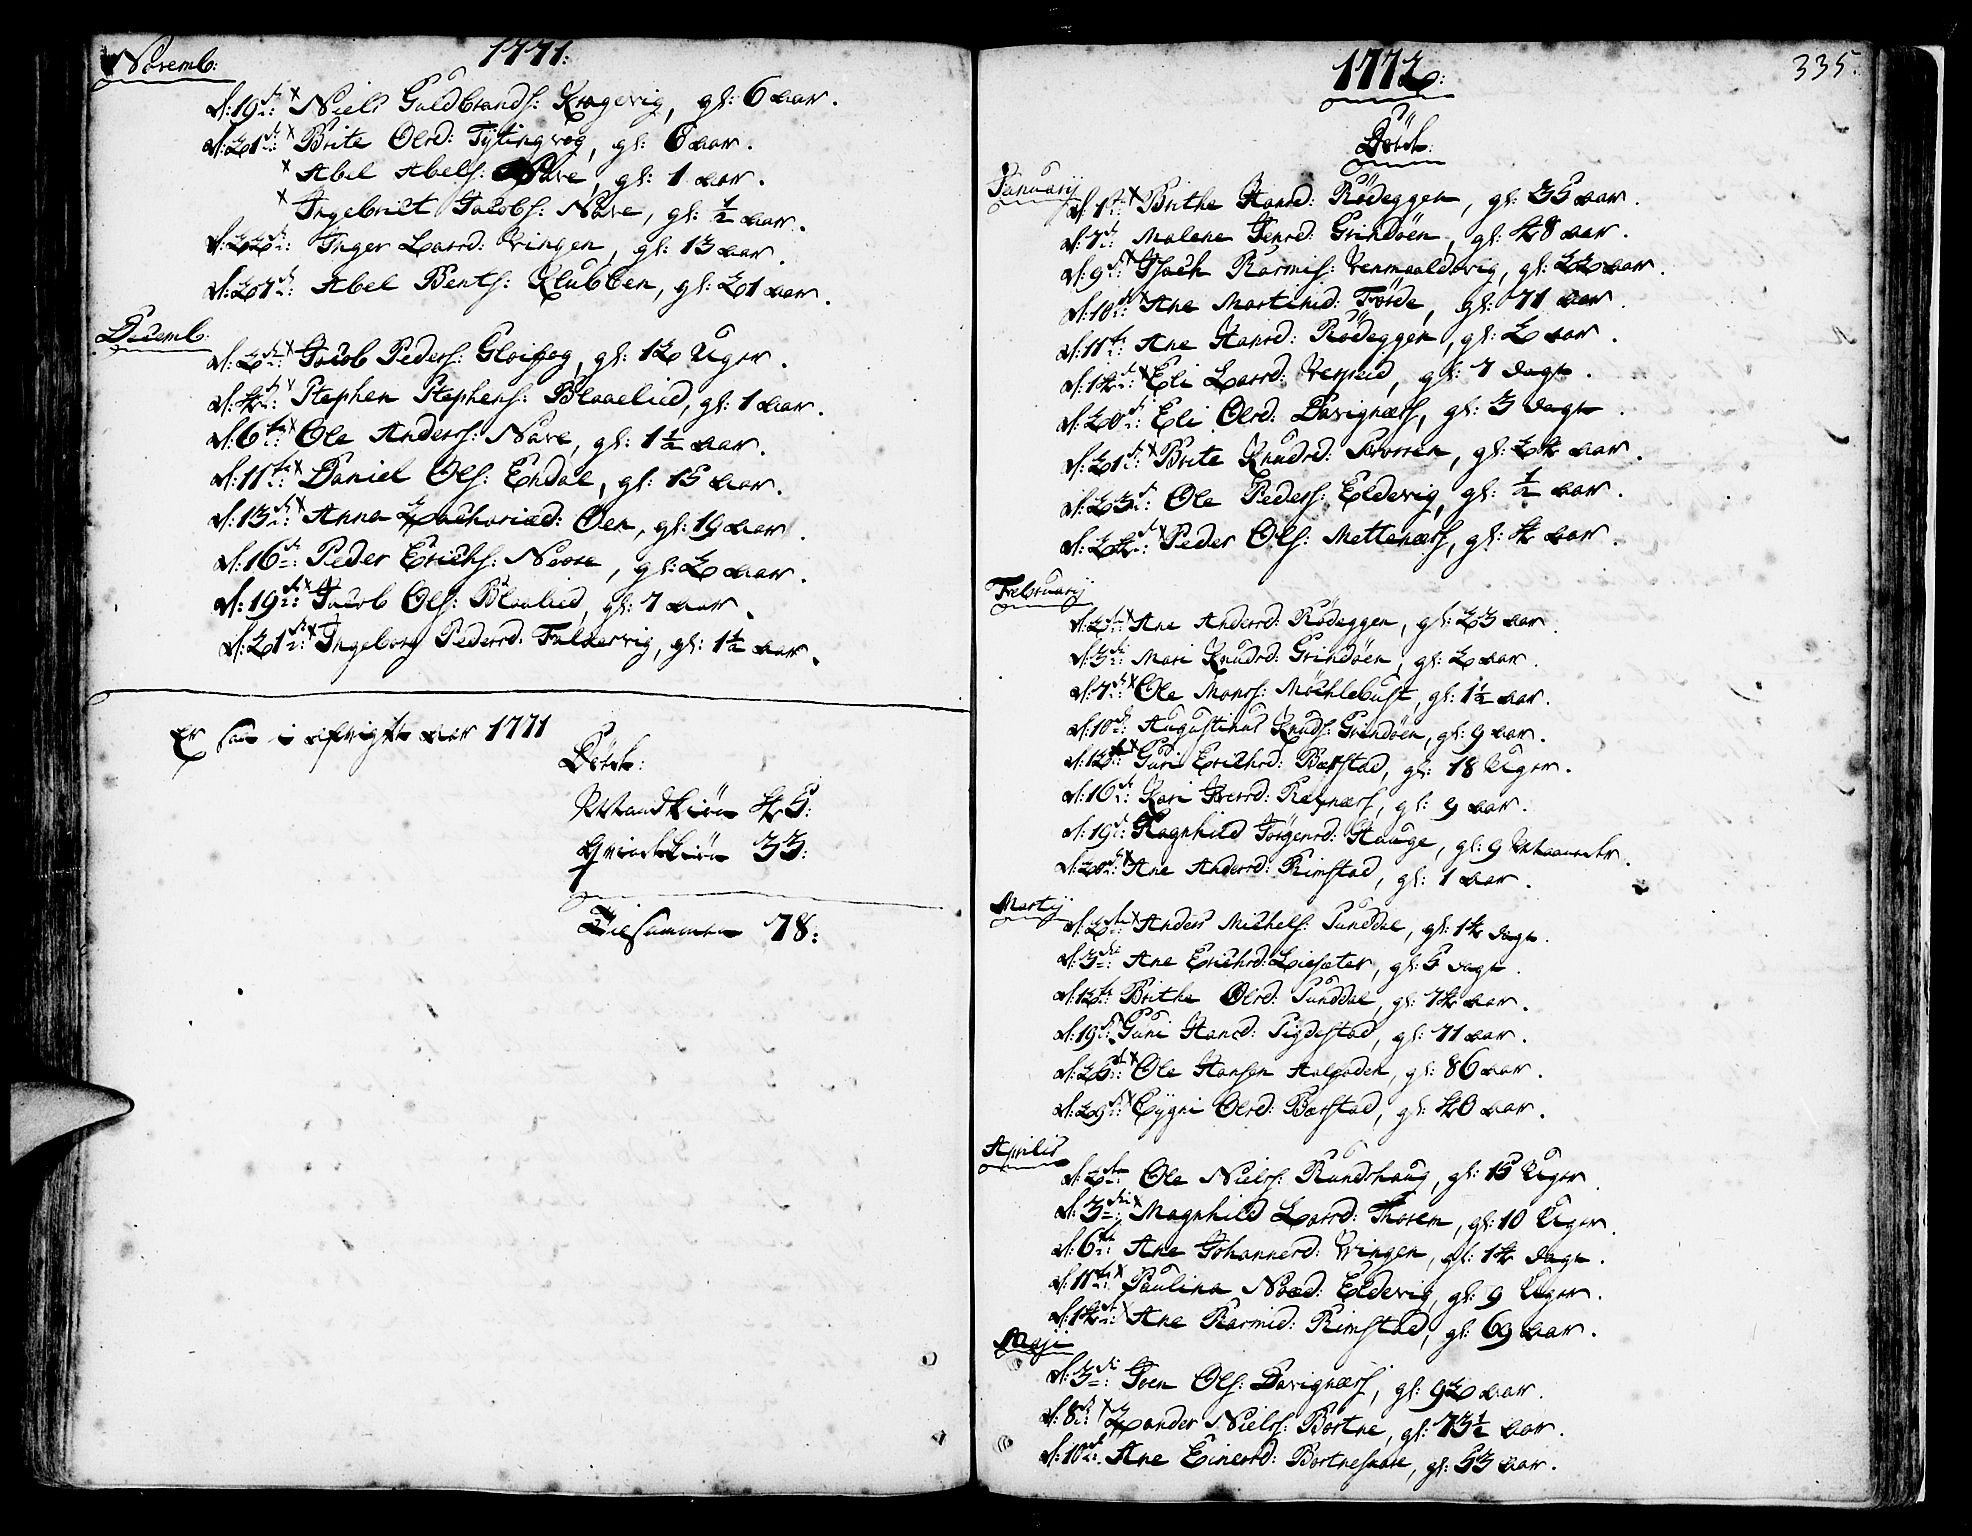 Novemb:
1771:
d: 19de: x Niels Guldbrands: Kragevig, gl: 6 aar.
d: 21de: x Brite Olsd: Tytingvog, gl: 6 aar.
x Abel Abels: Nave, gl: 1 aar.
x Ingebrict Jacobs: Nave, gl: ½ aar.
d: 22de: Inger Larsd: Vingen, gl: 13 aar.
d: 27de: Abel Bents: Klubben, gl: 21 aar.
Decemb:
d: 2den x Jacob Peders: gl: 12 Uger.
d: 4de: x Stephen Stephens: Blaaelied, gl: 1 aar.
d: 6te: x Ole Anderss: Nave, gl: 1½ aar.
d: 11te: x Daniel Ols: Endal, gl: 15 aar.
d: 13de: x Anna Zachariæd: Øen, gl: 19 aar.
d: 16de: Peder Erichs: Naore, gl: 2 aar.
d: 19de: x Jacob Ols: Blaalied, gl: 7 aar.
d: 21de: x Ingeborg Pedersd: gl: 1½ aar.
Er saa i afvigte aar 1771
Døde:
Mandkiøn 45:
Qvindekiøn 33:
Tilsammen 78:
335.
1772:
Døde:
January
d: 1ste: x Brithe Hansd: Rödeggen, gl: 35 aar.
d: 7de: Malene Jensd: Grindöen, gl: 48 aar.
d: 9de: x Isach Rasmis: Venmaaldsvig, gl: 22 aar.
d: 10de: x Ane Martinid: Förde, gl: 71 aar.
d: 11te: Ane Hansd: Rödeggen, gl: 2 aar.
d: 14de: x Eli Larsd: Vespeid, gl: 7 dage.
d: 20de: Eli Olsd: Davignæs, gl: 3 dage.
d: 21de: x Brite Knudsd: gl: 24 aar.
d: 23de: Ole Peders: Eldevig, gl: ½ aar.
d: 24de: x Peder Ols: Mettenæs, gl: 4 aar.
February
d: 2den x Ane Andersd: Rödeggen, gl: 23 aar.
d: 3die: Mari Knudsd: Grindöen, gl: 2 aar.
d: 7de: x Ole Monss: Möchlebust, gl: 1½ aar.
d: 10de: Augustinus Knuds: Grindöen, gl: 9 aar.
d: 12te: x Guri Erichsd: Barstad, gl: 18 Uger.
d: 16de: Kari Iversd: gl: 9 aar.
d: 19de: Ragnhild Jörgensd: Hauge, gl: 9 Maaneder.
d: 20de: x Ane Andersd: Rimstad, gl: 1 aar.
Martij
d: 2den: x Anders Michels: Sunddal, gl: 14 dage.
d: 3die: Ane Erichsd: Liesæter, gl: 5 dage.
d: 12te: Brithe Olsd: Sunddal, gl: 74 aar.
d: 19de: x Guri Hansd: Sigdestad, gl: 71 aar.
d: 26de: x Ole Hansen Aalfoden, gl: 86 aar.
d: 29de: x Sygni Olsd: Barstad, gl: 40 aar.
Aprilis
d: 2den Ole Nielss: Rundshaug, gl: 15 Uger.
d: 3die: x Magnhild Larsd: Thoren, gl: 10 Uger.
d: 6te: Ane Johannesd: Vingen, gl: 14 dage.
d: 11te: x Paulina Noæd: Eldevig, gl: 9 Uger.
d: 14de: x Ane Rasmid: Rimstad, gl: 69 aar.
Maji
d: 3die: Iven Ols: Davignæs, gl: 92 aar.
d: 8de: x Zander Nielss: Bortne, gl: 73½ aar.
d: 10de: Ane Einersd: Bortnesnare, gl: 53 aar.